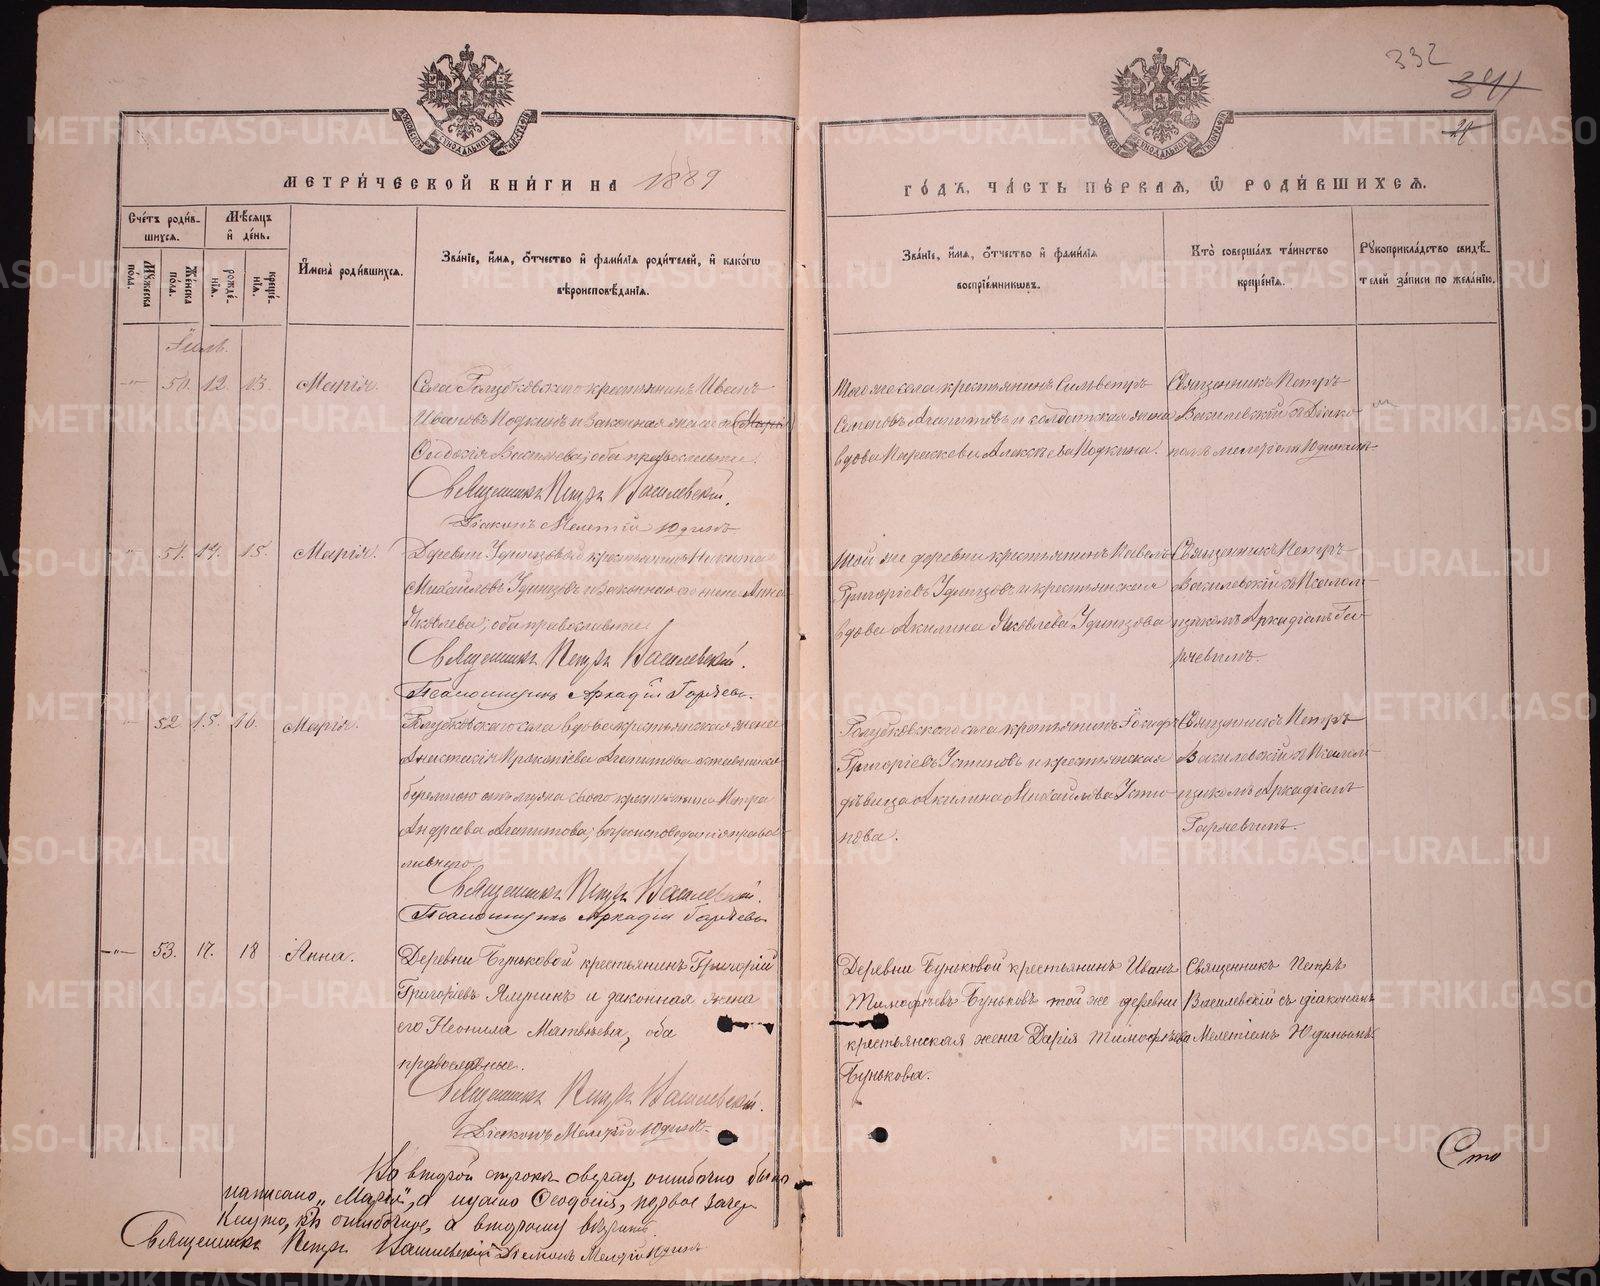 332
341
МЕТРИ́ЧЕСКОЙ КНИ́ГИ НА 1889
ГО́ДЪ, ЧА́СТЬ ПЕ́РВАЯ, Ѡ РОДИ́ВШИХСЯ.
Сче́тъ роди́в-
шихся.
Мѣ́сяцъ
и де́нь.
Му́жеска
по́ла.
Же́нска
по́ла.
рожде́-
нія.
креще́-
нія.
И҆мена̀ роди́вшихся.
Зва́ніе, и҆́мя, ѻ҆́тчество и҆ фами́лія роди́телей, и҆ како́гѡ
вѣроисповѣ́данія.
Зва́ніе, и҆́мя, ѻ҆́тчество и҆ фами́лія
воспріе́мникѡвъ.
Кто̀ соверша́лъ та́инство
креще́нія.
Рꙋкоприкла́дство свидѣ́-
телей за́писи по жела́нію.
Іюль.
50. 12. 13. Марія.
Села Голубковскаго крестьянинъ Иванъ
Ивановъ Подкинъ и законная жена его (Марія)
Ѳеодосія Васильева; оба православные.
Священникъ Петръ Василевскій.
Діаконъ Мелетій Юдинъ
Тогоже села крестьянинъ Сильвестръ
Семеновъ Агапитовъ и солдатская жена
вдова Параскева Алексѣева Подкина.
Священникъ Петръ
Василевскій съ Діако-
номъ Мелетіемъ Юдинымъ
51. 14. 15. Марія.
Деревни Удинцовой крестьянинъ Никита
Михайловъ Удинцовъ и законная его жена Анна
Яковлева; оба православные.
Священникъ Петръ Василевскій.
Псаломщикъ Аркадій Гаряевъ.
Той же деревни крестьянинъ Павелъ
Григорьевъ Удинцовъ и крестьянская
вдова Акилина Яковлева Удинцова
Священникъ Петръ
Василевскій съ Псалом-
щикомъ Аркадіемъ Га-
ряевымъ.
52 15. 16. Марія.
Голубковскаго села вдова крестьянская жена
Анастасія Прокопіева Агапитова оставшаяся
беремною отъ мужа своего крестьянина Петра
Андреева Агапитова; вероисповеданія правос-
лавнаго.
Священникъ Петръ Василевскій.
Псаломщикъ Аркадій Гаряевъ
Голубковскаго села крестьянинъ Іосифъ
Григорьевъ Устиновъ и крестьянская
дѣвица Акилина Михайлова Усти-
нова.
Священникъ Петръ
Василевскій съ Псалом-
щикомъ Аркадіемъ
Гаряевымъ.
53. 17. 18 Анна.
Деревни Буньковой крестьянинъ Григорій
Григорьевъ Ялунинъ и законная жена
его Неонила Матвѣева, оба
православные.
Священникъ Петръ Василевскій.
Діаконъ Мелетій Юдинъ
Деревни Буньковой крестьянинъ Иванъ
Тимофѣевъ Буньковъ той же деревни
крестьянская жена Дарія Тимофѣева
Бунькова.
Священникъ Петръ
Василевскій съ діакономъ
Мелетіемъ Юдинымъ.
Сто
На второй строкѣ сверху, ошибочно было
написано „Марія“, а нужно Ѳеодосія, первое зачер-
кнуто, какъ ошибочное, а второму вѣрить.
Священникъ Петръ Василевскій Діаконъ Мелетій Юдинъ
METRIKI.GASO-URAL.RU